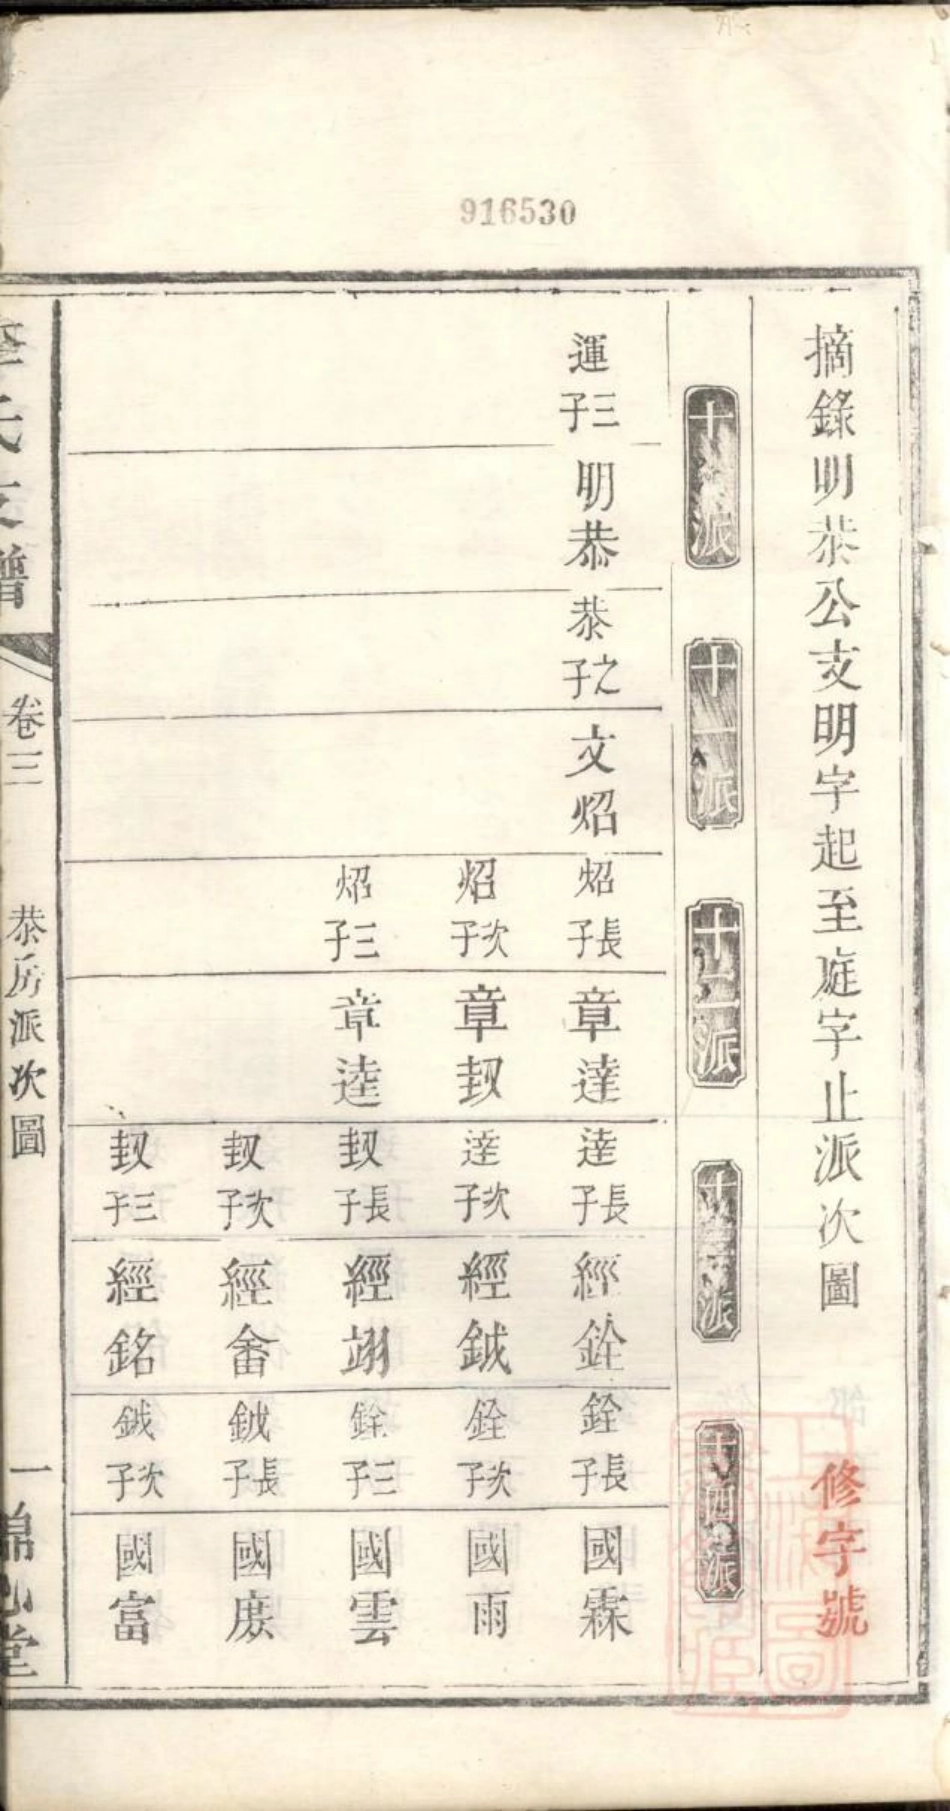 916530
摘錄明恭公支明字起至庭字止派次圖
修字號
十派
十一派
十二派
十三派
十四派
運三子
明恭
恭之子
文炤
炤長子
章達
達長子
經銓
銓長子
國霖
炤次子
章㓞
達次子
經鉞
銓次子
國雨
炤三子
章逵
㓞長子
經翊
銓三子
國雲
㓞次子
經畬
鉞長子
國庶
㓞三子
經銘
鉞次子
國富
氏支譜
卷三
恭房派次圖
一
堂